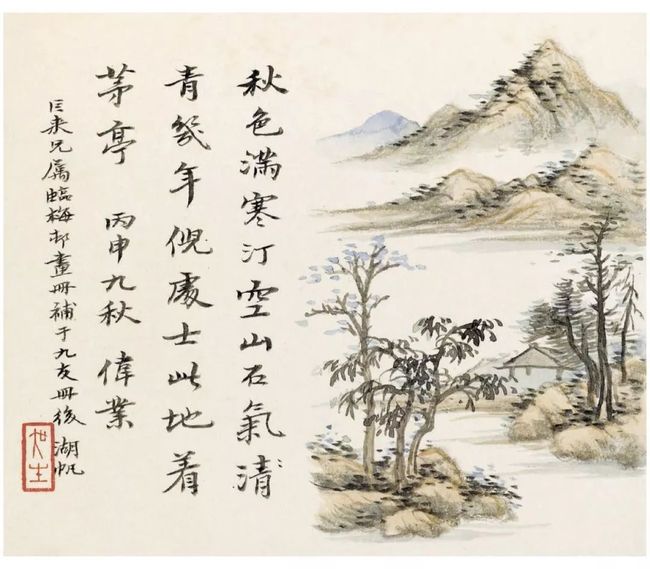 秋色滿寒汀空山石氣清
青幾年倪處士此地着
茅亭 丙申九秋 偉業
巨来兄屬臨梅邨畫冊補于九友冊後 湖帆